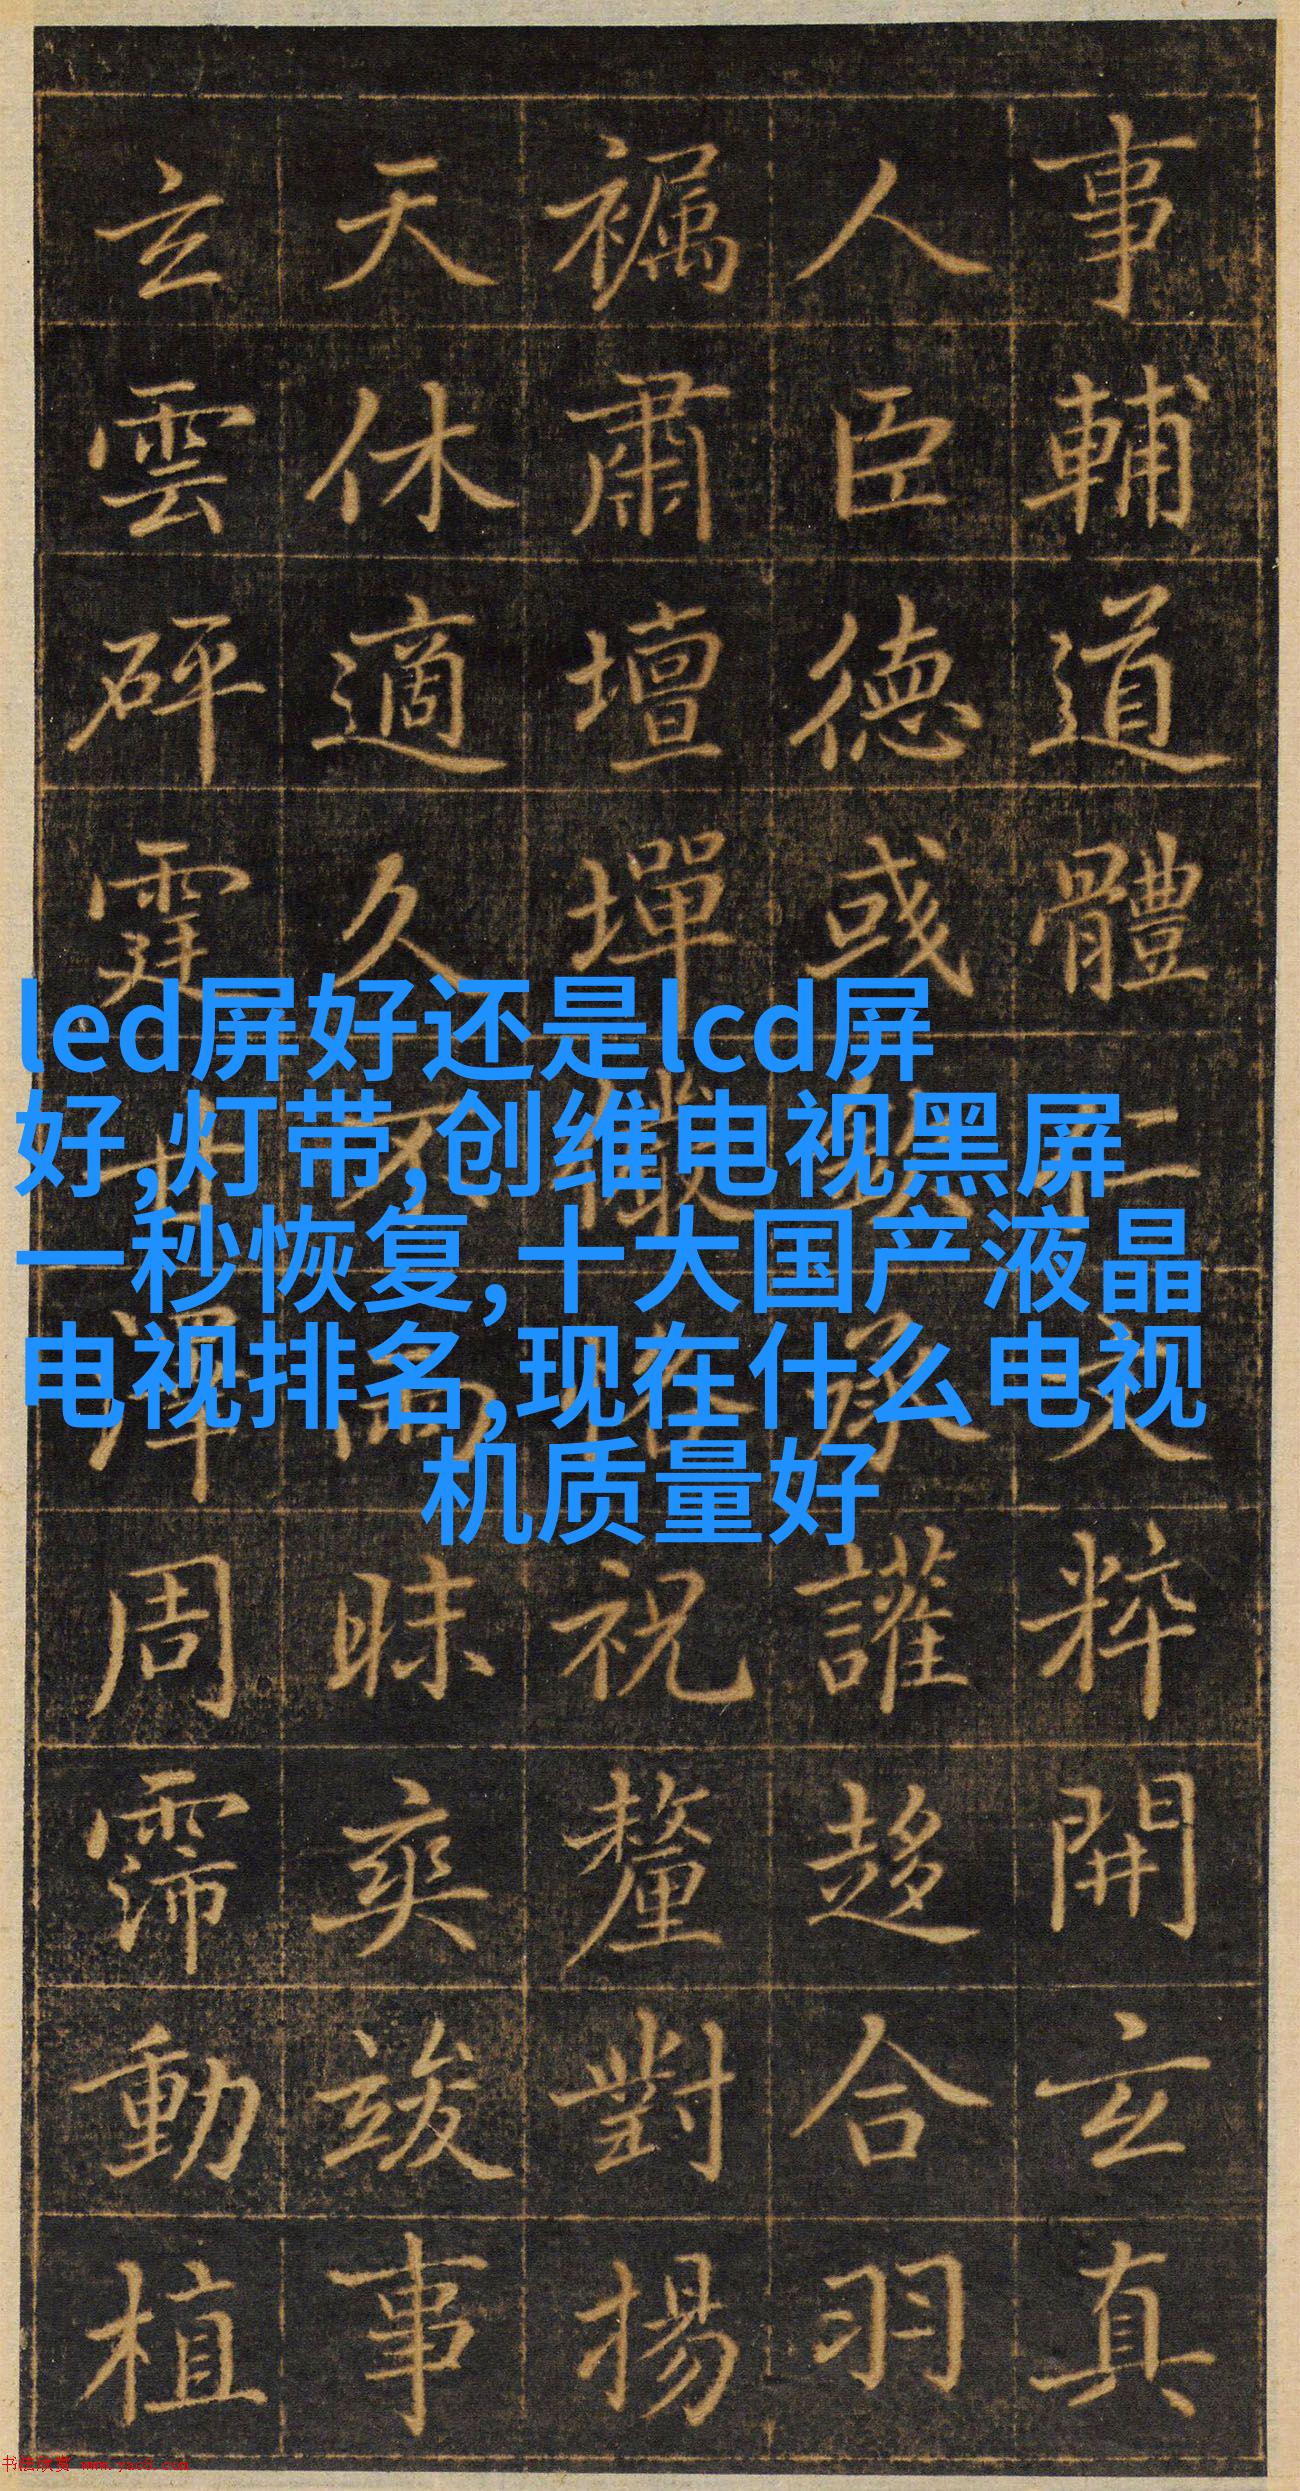 事輔道體仁文粹開玄真
人臣德或承讙趍合羽
襡肅壇墠祝釐對揚
天休適久而昧爽竣事
玄雲砰霆周霈動植
led屏好还是lcd屏
好,灯带,创维电视黑屏
一秒恢复,十大国产液晶
电视排名,现在什么电视
机质量好
书法欣赏 www.yac8.com